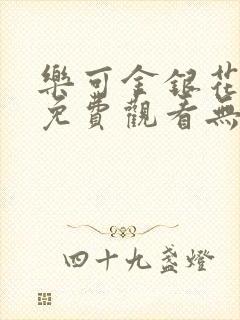 樂可金銀花
免費觀看無
四十九盞燈